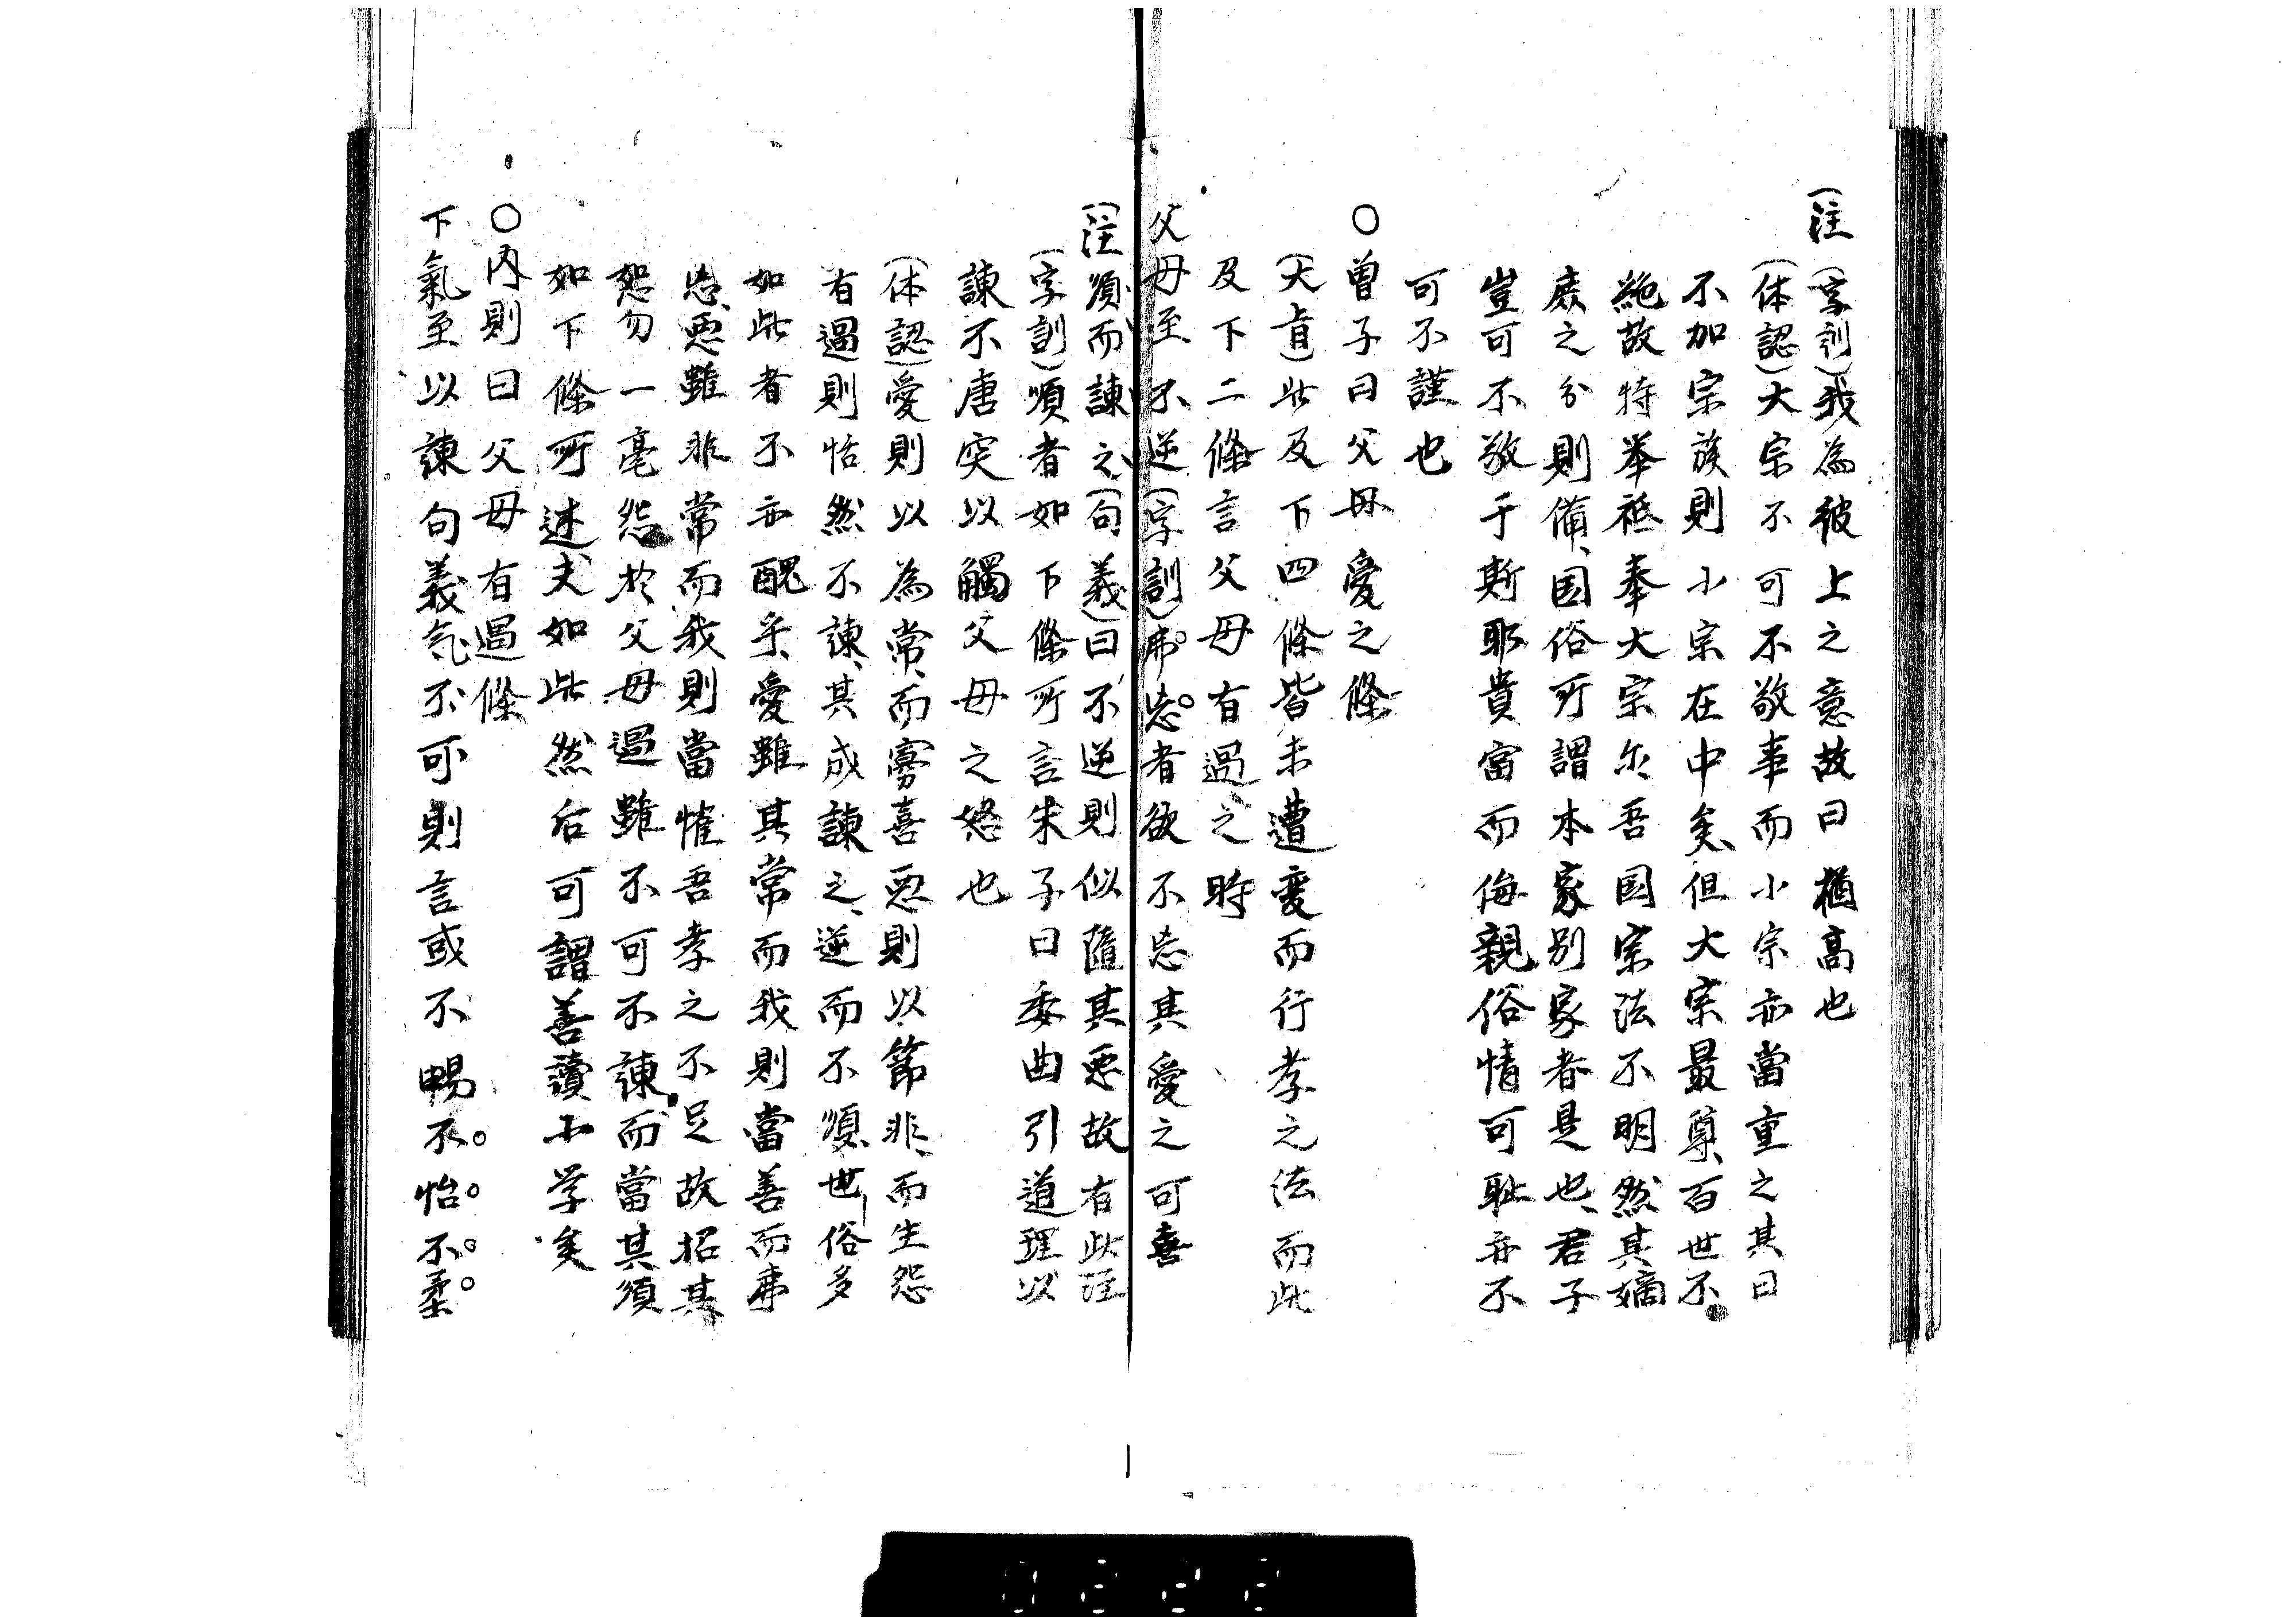 (注 (字訓)我為彼上之意故曰猶高也
(体認)大宗不可不敬事而小宗亦當重之其曰
不加宗族則小宗在中矣但大宗最尊百世不
絶故特举祗奉大宗尓吾国宗法不明然其嫡
庻之分則備国俗所謂本家別家者是也君子
豈可不敬于斯耶貴富而侮親俗情可耻亦不
可不謹也
○曽子曰父母愛之條
(大旨)此及下四條皆未遭変而行孝之法而此
及下二條言父母有過之時
父母至不逆(字訓)弗忘者欲不忘其愛之可喜
(注順而諫之(句義)曰不逆則似隨其悪故有此注
(字訓)順者如下條所言朱子曰委曲引道理以
諫不唐突以觸父母之怒也
(体認)愛則以為常而寡喜悪則以節非而生怨
有過則怡然不諫其成諫之逆而不順世俗多
如此者不亦醜乎愛雖其常而我則當善而弗
忘悪雖非常而我則當惟吾孝之不足故招其
怒勿一毫怨於父母過雖不可不諫而當其須
如下條所述夫如此然后可謂善讀小学矣
○内則曰父母有過條
下氣至以諫句義気不可則言或不暢不怡不柔